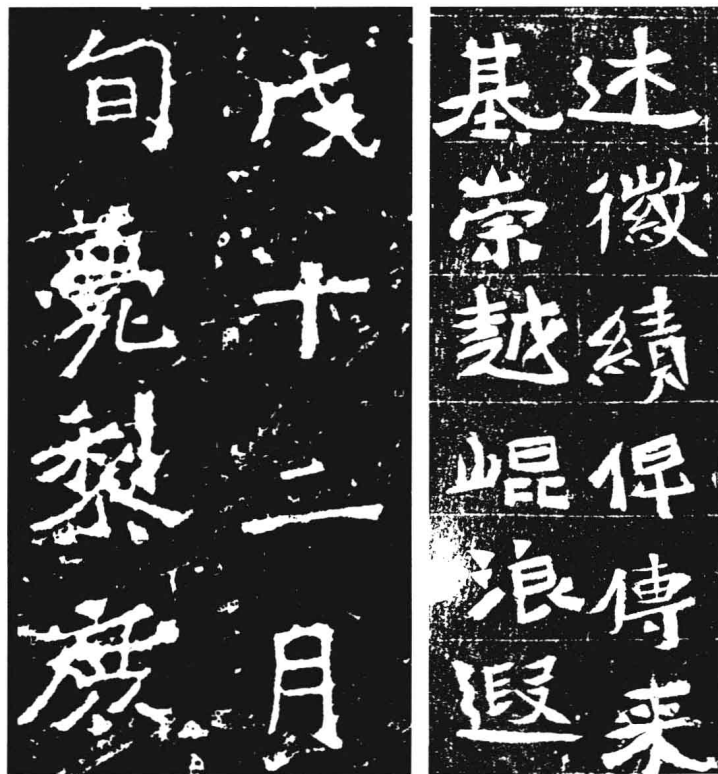 述徽績俾傳来
基崇越崐浪遐
戌十二月
旬薨黎庶